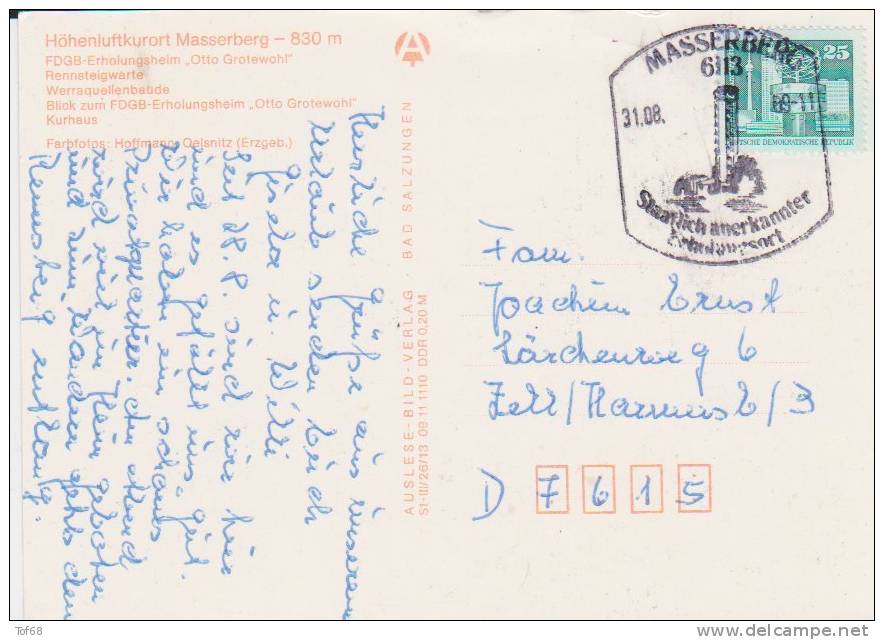 Höhenluftkurort Masserberg – 830 m
FDGB-Erholungsheim „Otto Grotewohl"
Rennsteigwarte
Werraquellenbaude
Blick zum FDGB-Erholungsheim „Otto Grotewohl"
Kurhaus
Farbfotos: Hoffmann, Oelsnitz (Erzgeb.)
Herzliche Grüße aus unserem
Urlaub senden Euch
Gisela u. Willi
Seit 28.8. sind wir hier
und es gefällt uns gut.
Wir haben ein schönes
Privatquartier. Am Abend
wird viel im Heim geboten
und zum Wandern gehts den
Rennsteig entlang.
AUSLESE-BILD-VERLAG · BAD SALZUNGEN
St-III/26/13 09 11 1110 DDR 0,20 M
MASSERBERG
6113
31.08. 89-11
Staatlich anerkannter
Erholungsort
25
DEUTSCHE DEMOKRATISCHE REPUBLIK
Fam.
Joachim Ernst
Lärchenweg 6
Zell/Harmersb/3
D 7615
Tof68
delcampe.net